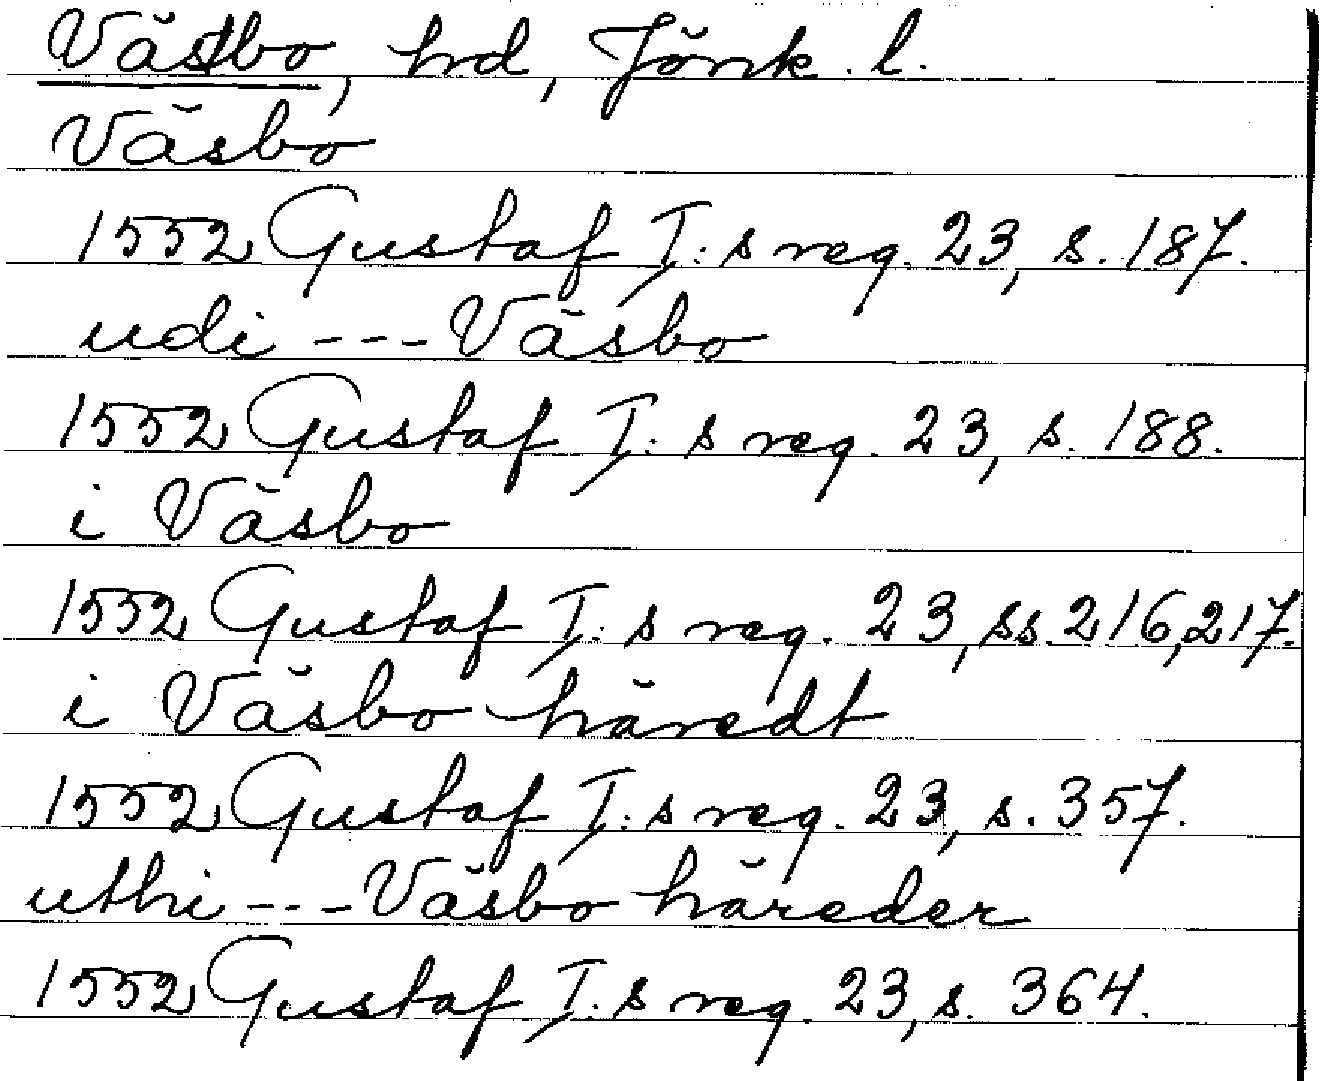 Västbo, hrd, Jönk. l.
Väsbo
1552 Gustaf I:s reg. 23, s. 187.
udi --- Väsbo
1552 Gustaf I:s reg. 23, s. 188.
i Väsbo
1552 Gustaf I:s reg. 23, ss. 216, 217.
i Väsbo häredt
1552 Gustaf I:s reg. 23, s. 357.
uthi --- Väsbo häreder
1552 Gustaf I:s reg. 23, s. 364.